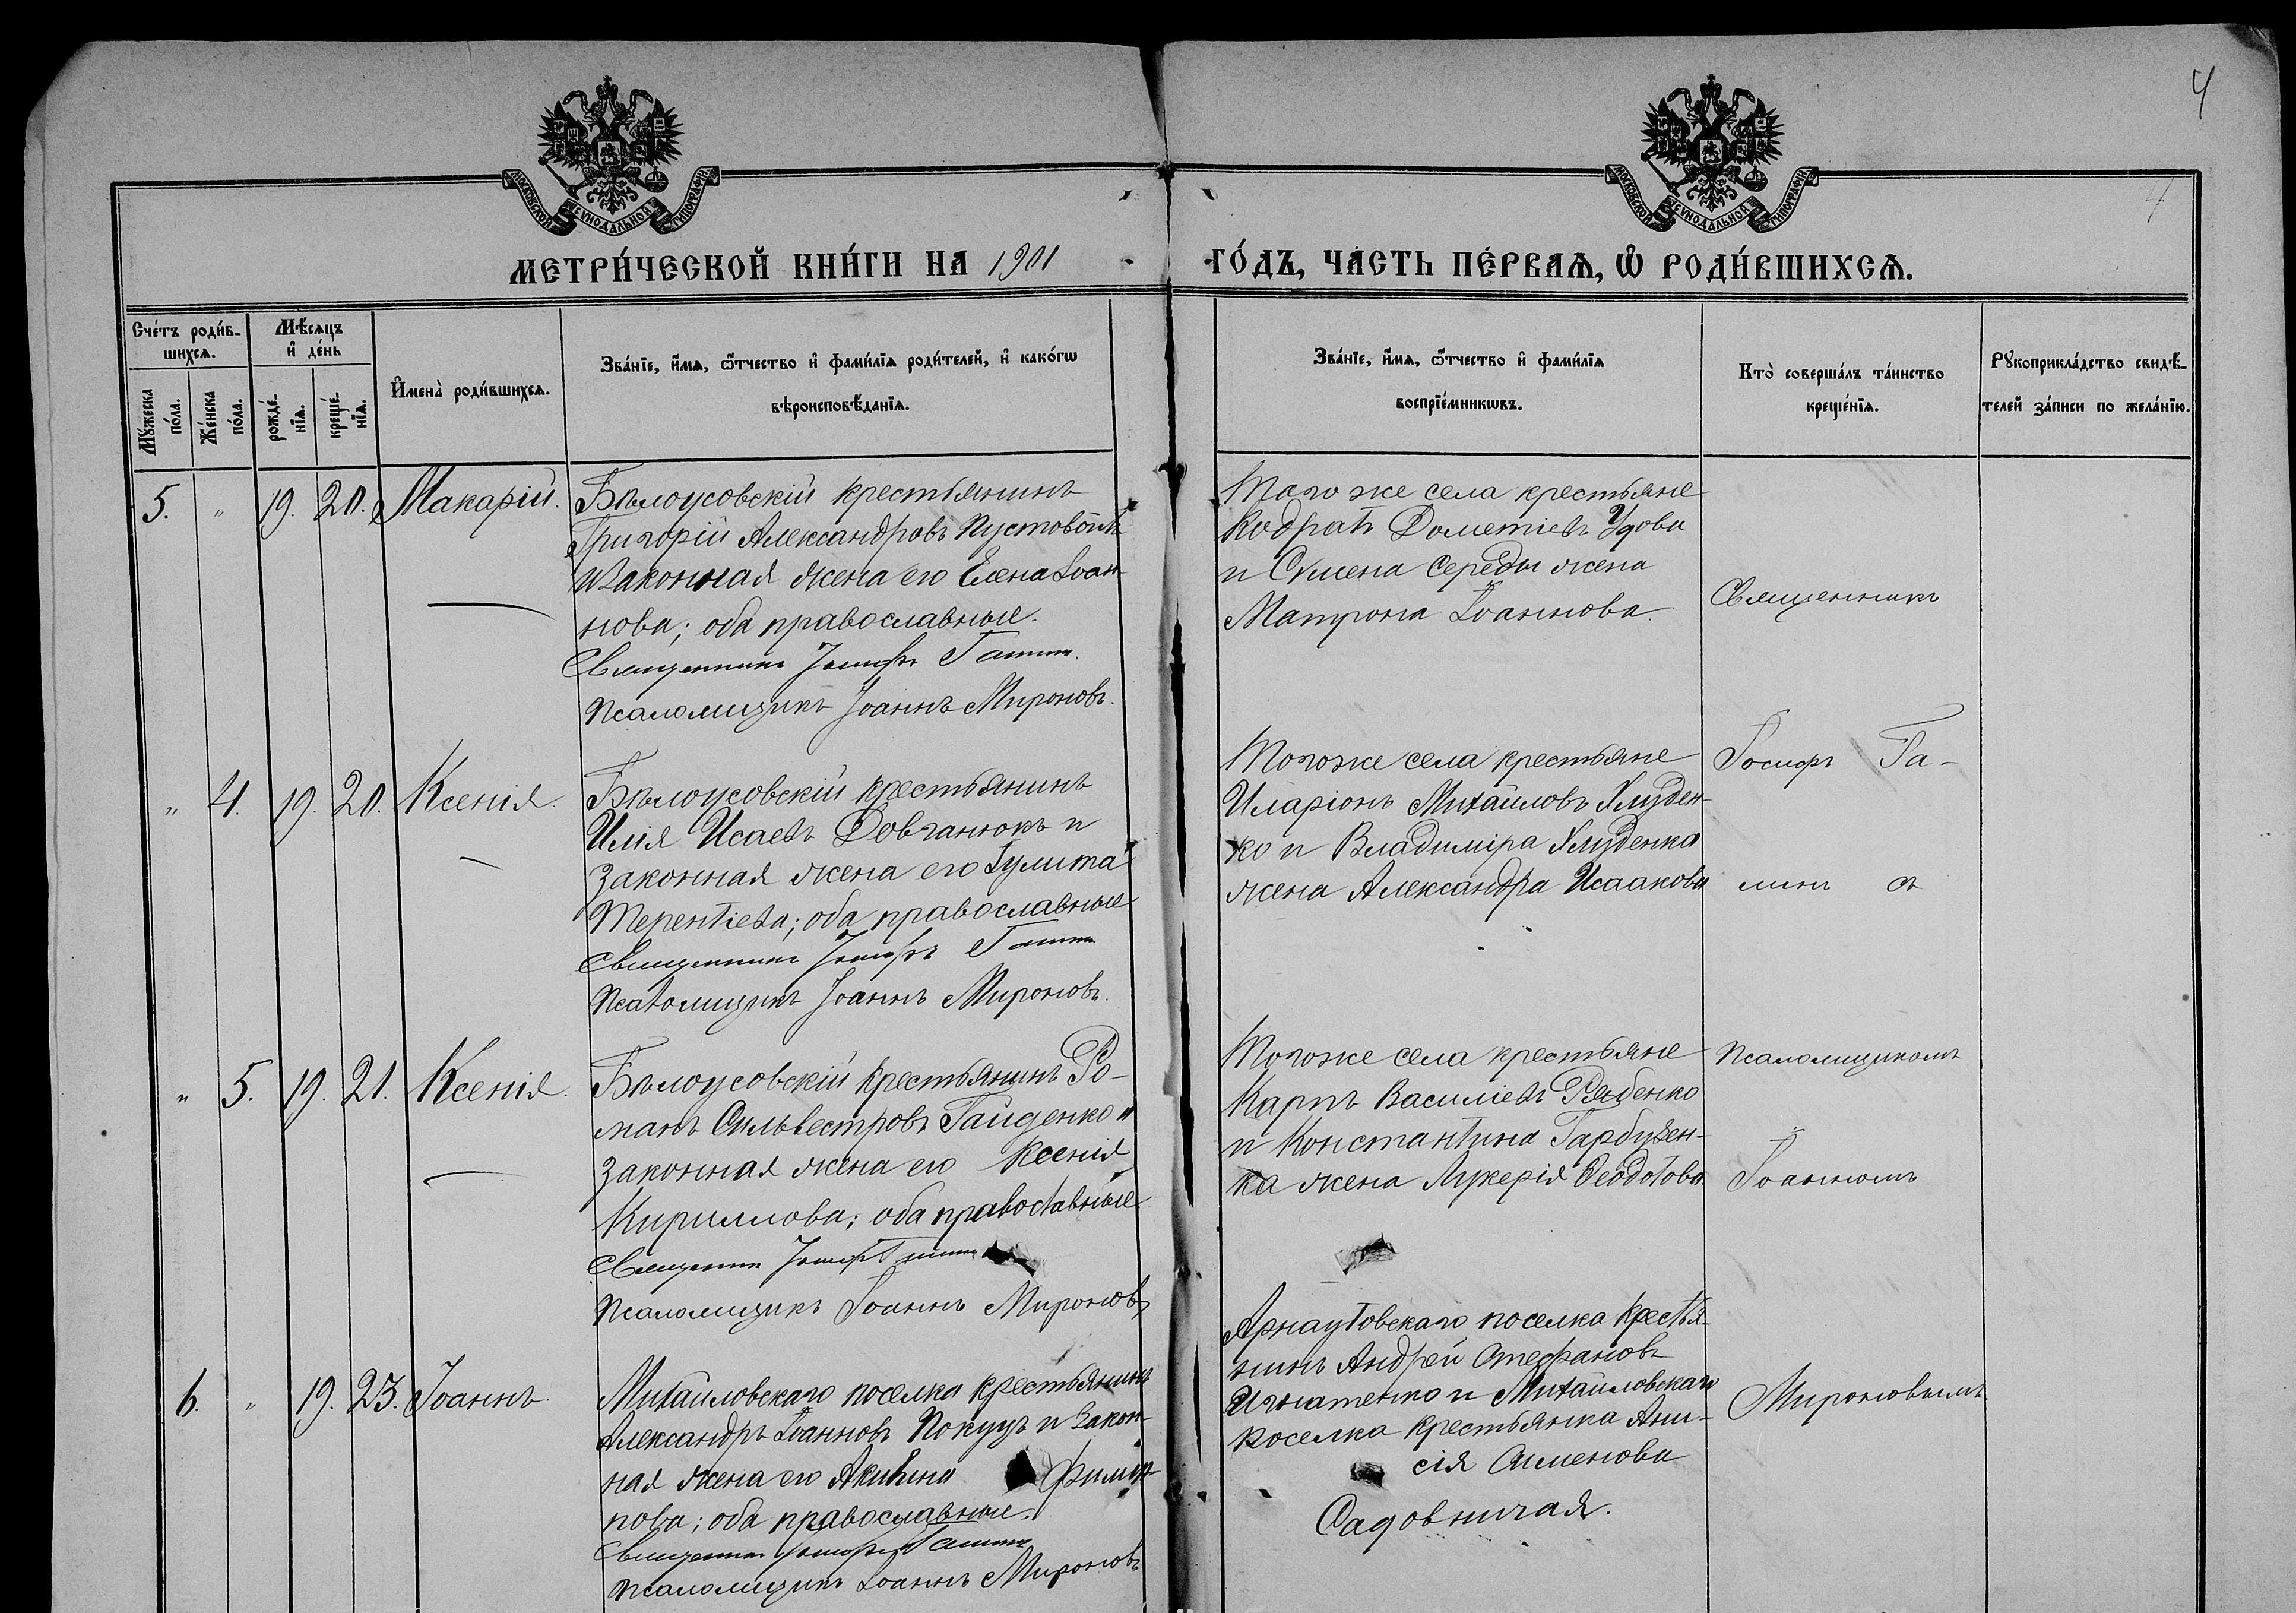 4
МОСКОВСКОЙ СѴНОДАЛЬНОЙ ТИПОГРАФІИ
МОСКОВСКОЙ СѴНОДАЛЬНОЙ ТИПОГРАФІИ
МЕТРИ́ЧЕСКОЙ КНИ́ГИ НА 1901 ГО́ДЪ, ЧА́СТЬ ПЕ́РВАѦ, Ѡ РОДИ́ВШИХСѦ.
Сче́тъ роди́в-
шихсѧ.
Мꙋ́жеска по́ла.
Же́нска по́ла.
Мѣ́сѧцъ и де́нь
рожде́-
нїѧ.
креще́-
нїѧ.
Имена̀ роди́вшихсѧ.
Зва́нїе, и́мѧ, ѻ҆́тчество и фами́лїѧ роди́телей, и како́гѡ
вѣроисповѣ́данїѧ.
Зва́нїе, и́мѧ, ѻ҆́тчество и фами́лїѧ
воспрїе́мникѡвъ.
Кто̀ соверша́лъ та́инство
креще́нїѧ.
Рꙋкоприкла́дство свидѣ́-
телей за́писи по жела́нїю.
5. " 19. 20. Макарій.
Бѣлоусовскій крестьянинъ
Григорій Александровъ Пустовойтъ
и законная жена его Елена Іоан-
нова; оба православные.
Священникъ Іосифъ Галин
Псаломщикъ Іоаннъ Мироновъ.
Того же села крестьяне
Кодратъ Дометіевъ Удова
и Сѵмена Середы жена
Матрона Іоаннова.
Священникъ
" 4. 19. 20. Ксенія.
Бѣлоусовскій крестьянинъ
Илія Исаевъ Довганюкъ и
законная жена его Іулита
Терентіева; оба православные
Священникъ Іосифъ Галин
Псаломщикъ Іоаннъ Мироновъ.
Того же села крестьяне
Иларіонъ Михайловъ Хлуден-
ко и Владиміра Хлуденка
жена Александра Исаакова
Іосифъ Га-
линъ съ
" 5. 19. 21. Ксенія.
Бѣлоусовскій крестьянинъ Ро-
манъ Сильвестровъ Гайденко и
законная жена его Ксенія
Кириллова; оба православные
Священник Іосифъ Галин
Псаломщикъ Іоаннъ Мироновъ
Того же села крестьяне
Карпъ Василіевъ Рябенко
и Константина Гарбузен-
ка жена Лукерія Ѳеодотова
Псаломщикомъ
Іоанномъ
6. " 19. 23. Іоаннъ
Михайловскаго поселка крестьянинъ
Александръ Іоанновъ Покуцъ и закон-
ная жена его Акилина Филип-
пова; оба православные.
Священник Іосифъ Галин
Псаломщикъ Іоаннъ Мироновъ
Арнаутовскаго поселка крестья-
нинъ Андрей Стефановъ
Игнатенко и Михайловскаго
поселка крестьянка Ани-
сія Сименова
Садовничая.
Мироновымъ